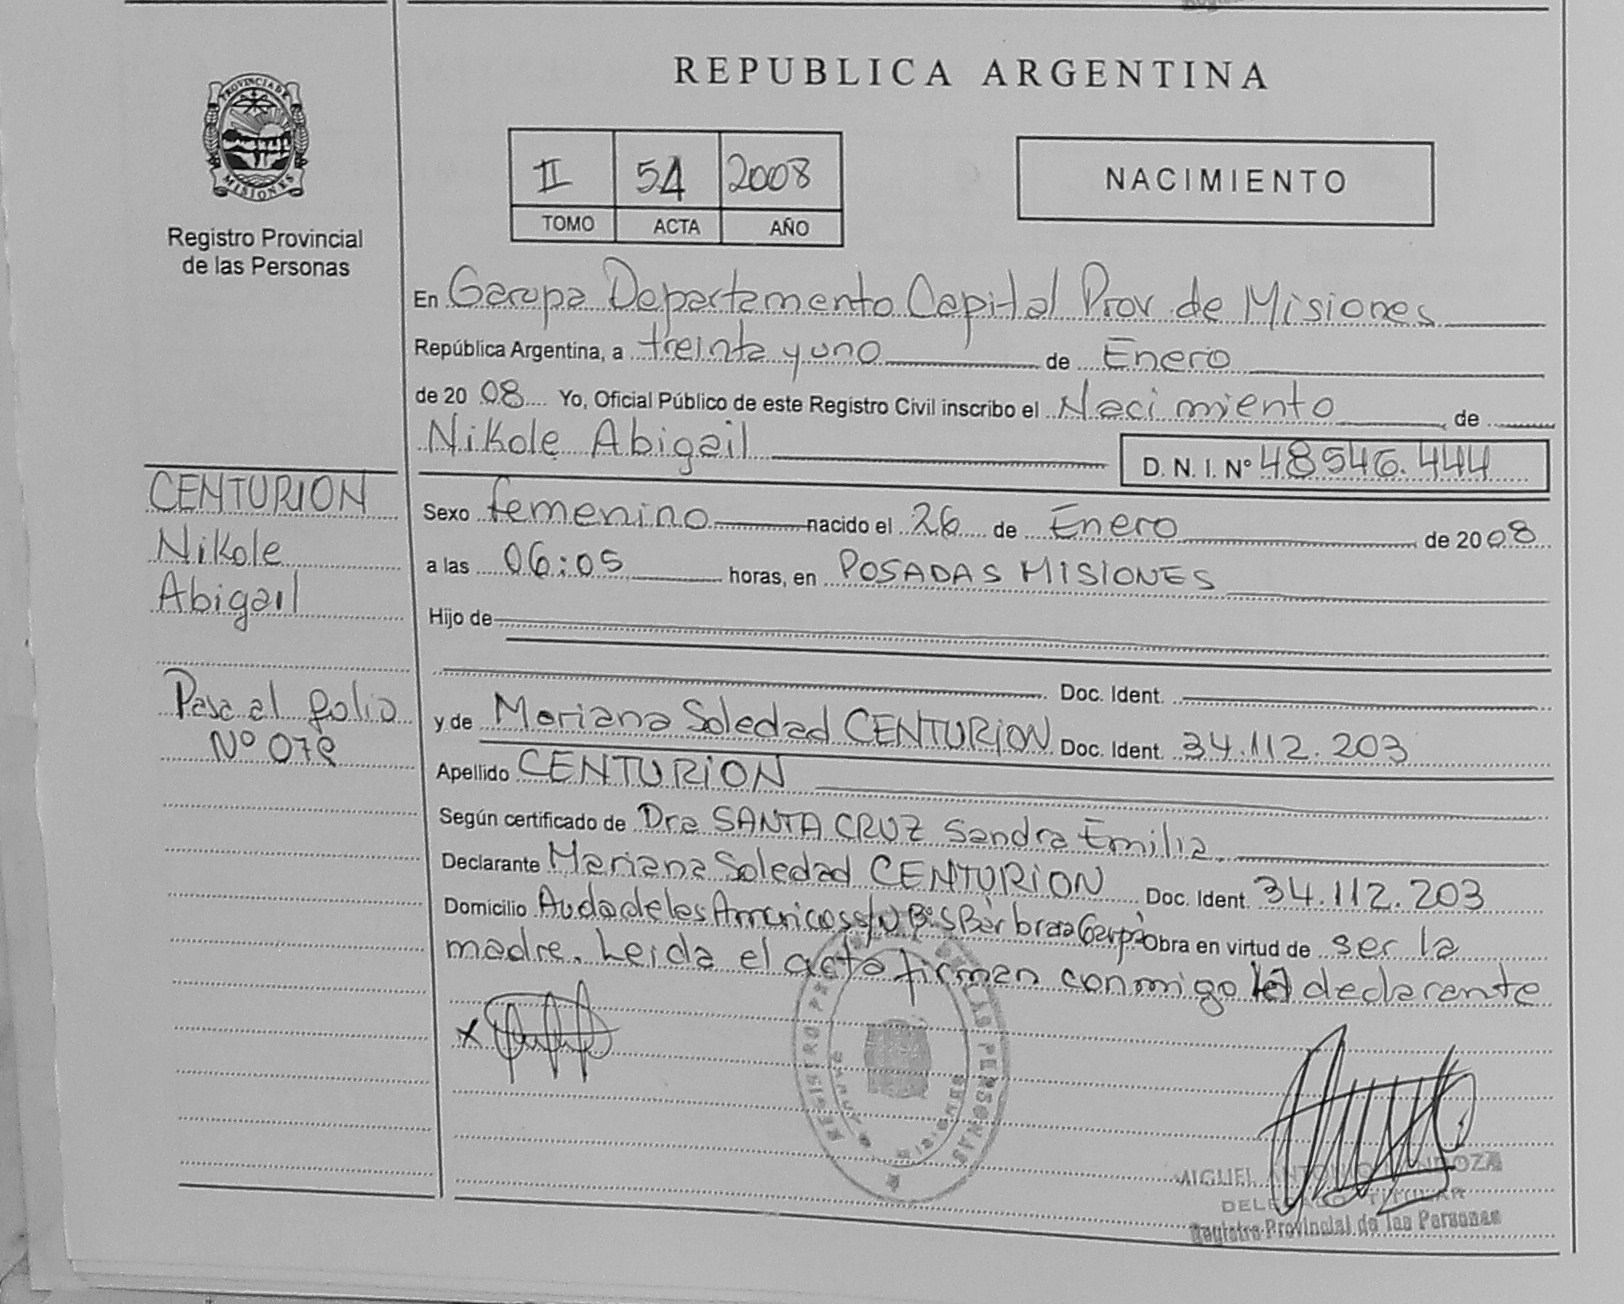 REPUBLICA ARGENTINA
PROVINCIA DE
MISIONES
Registro Provincial
de las Personas
II 54 2008
TOMO ACTA AÑO
NACIMIENTO
En Garupa Departamento Capital Prov. de Misiones
República Argentina, a treinta y uno de Enero
de 20 08 Yo, Oficial Público de este Registro Civil inscribo el Nacimiento de
Nikole Abigail D. N. I. Nº 48546.444
CENTURION
Nikole
Abigail
Pasa al folio
Nº 078
Sexo femenino nacido el 26 de Enero de 20 08
a las 06:05 horas, en POSADAS MISIONES
Hijo de
Doc. Ident.
y de Mariana Soledad CENTURION Doc. Ident. 34.112.203
Apellido CENTURION
Según certificado de Dra SANTA CRUZ Sandra Emilia
Declarante Mariana Soledad CENTURION Doc. Ident. 34.112.203
Domicilio Avda de las Americas s/N Bº S Bàrbara Garupà Obra en virtud de ser la
madre. Leida el acta firman conmigo la declarante
REGISTRO DE LAS PERSONAS
MIGUEL ANTONIO MENDOZA
DELEGADO TITULAR
Registro Provincial de las Personas